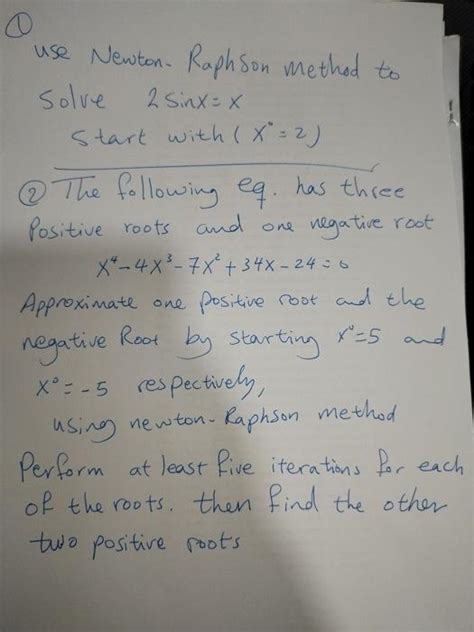 ①
use Newton-Raphson method to
solve 2 sinx = x
start with (x° = 2)
② The following eq. has three
Positive roots and one negative root
x⁴-4x³-7x²+34x-24=0
Approximate one positive root and the
negative Root by starting x°=5 and
x°=-5 respectively,
using newton-Raphson method
Perform at least five iterations for each
of the roots. then find the other
two positive roots